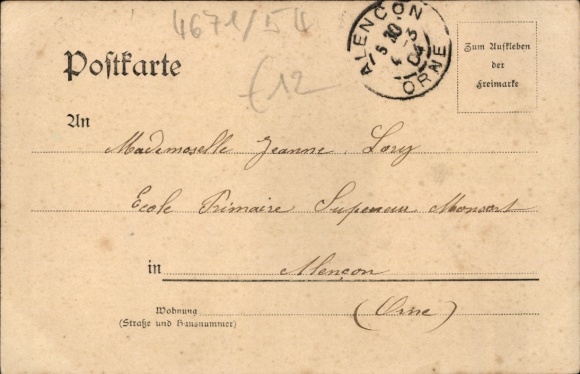 4671/54
ALENÇON
ORNE
Postkarte
Zum Aufkleben
der
Freimarke
€12
An
Mademoselle Jeanne Lory
Ecole Primaire Superieur Monsort
in Alençon
Wohnung
(Straße und Hausnummer)
(Orne)